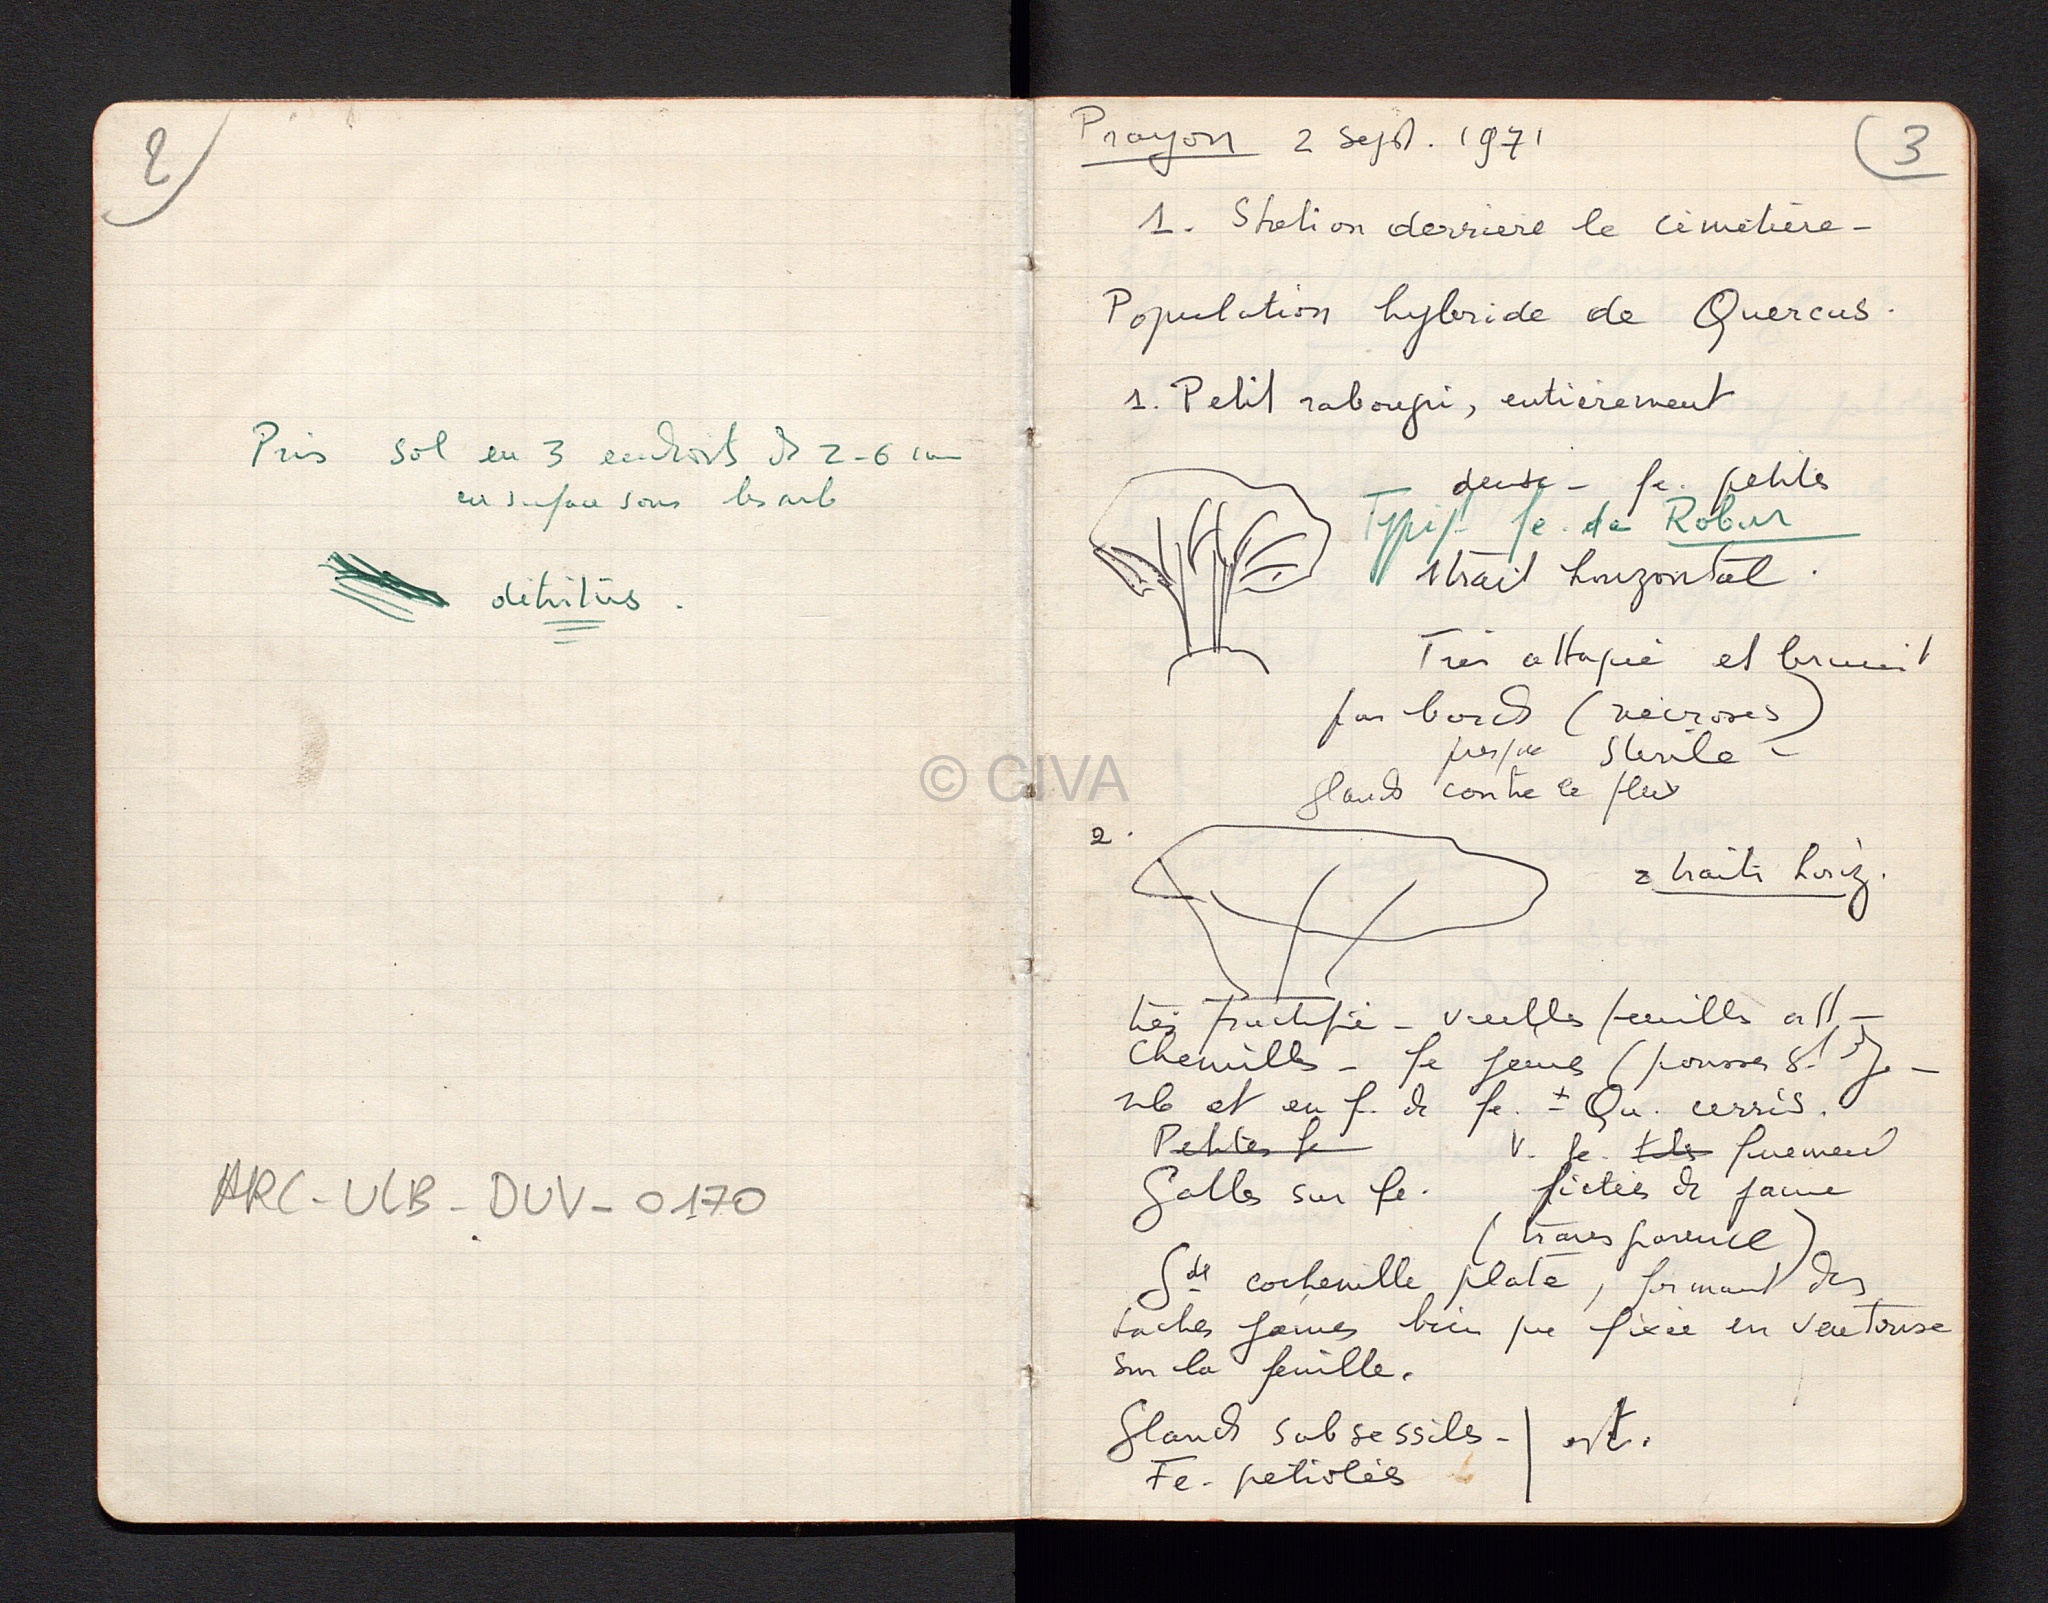 2
Pris sol en 3 endroits de 2-6 cm
en surface sous les arb
détritus.
ARC-ULB-DUV-0170
3
Prayon 2 sept. 1971
1. Station derrière le cimetière-
Population hybride de Quercus.
1. Petit rabougri, entièrement
dense - fe. petites
Typiq. fe. de Robur
1 trait horizontal.
Très attaqué et brunit
par bords (nécroses)
presque stérile -
glands contre le flux
2.
2 traits horiz.
très fructifié - vieilles feuilles att-
Chenilles - fe jeunes (pousses St J-
nb et en f. de fe. ± Qu. cerris.
Petites fe V. fe. finement
Galles sur fe. pictés de jaune
(transparence)
Gde cochenille plate, formant des
taches jaunes bien que fixée en ventouse
sur la feuille.
Glands subsessiles -
Fe. pétiolées
© CIVA